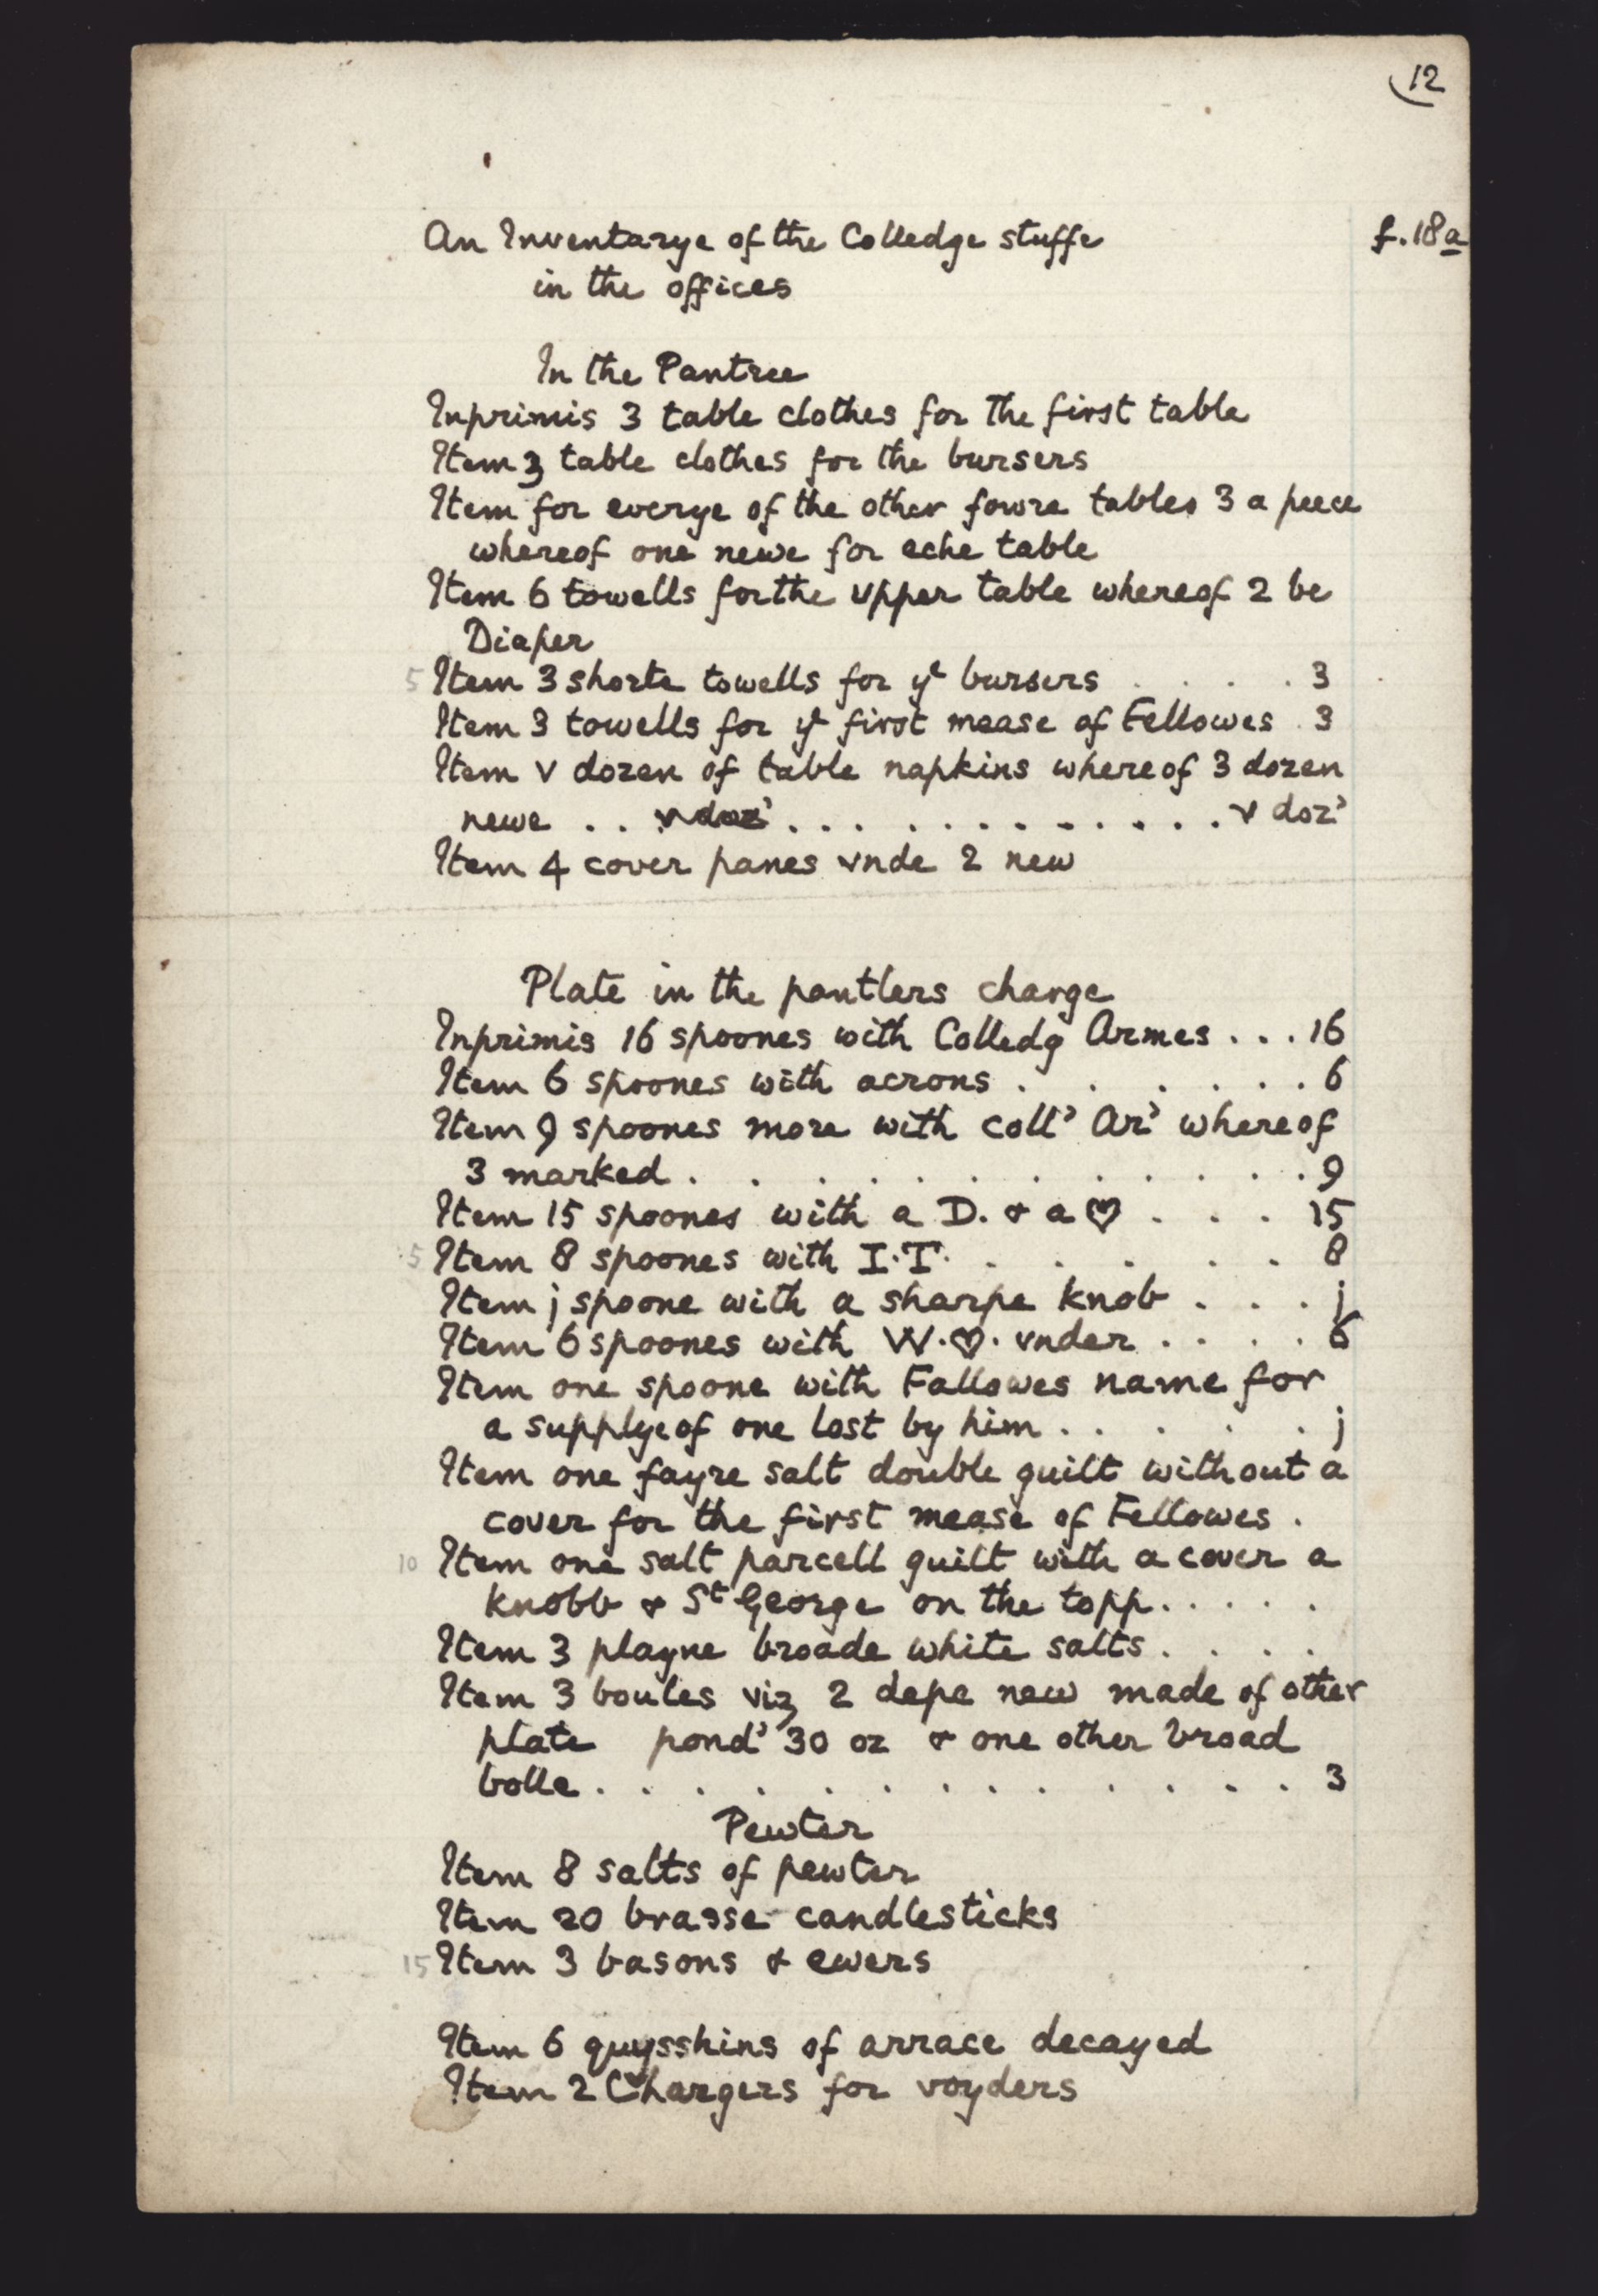 12
An Inventarye of the Colledge stuffe f. 18a
in the offices
In the Pantree
Inprimis 3 table clothes for the first table
Item 3 table clothes for the bursers
Item for everye of the other fowre tables 3 a peece
whereof one newe for eche table
Item 6 towells for the vpper table whereof 2 be
Diaper
5 Item 3 shorte towells for yᵉ bursers . . . . 3
Item 3 towells for yᵉ first mease of Fellowes . 3
Item v dozen of table napkins whereof 3 dozen
newe . . v doz' . . . . . . . . . . . . v doz'
Item 4 cover panes vnde 2 new
Plate in the pantlers charge
Inprimis 16 spoones with Colledg Armes . . . 16
Item 6 spoones with acrons . . . . . . 6
Item 9 spoones more with coll' Ar' whereof
3 marked . . . . . . . . . . . . 9
Item 15 spoones with a D. & a ♡ . . . 15
5 Item 8 spoones with I.T. . . . . . . 8
Item j spoone with a sharpe knob . . . j
Item 6 spoones with W.♡. vnder . . . . 6
Item one spoone with Fallowes name for
a supplye of one lost by him . . . . . j
Item one fayre salt double guilt without a
cover for the first mease of Fellowes .
10 Item one salt parcell guilt with a cover a
knobb & Sᵗ George on the topp . . . . .
Item 3 playne broade white salts . . . .
Item 3 boules viz 2 depe new made of other
plate pond' 30 oz & one other broad
bolle . . . . . . . . . . . . 3
Pewter
Item 8 salts of pewter
Item 20 brasse candlesticks
15 Item 3 basons & ewers
Item 6 quysshins of arrace decayed
Item 2 Chargers for voyders